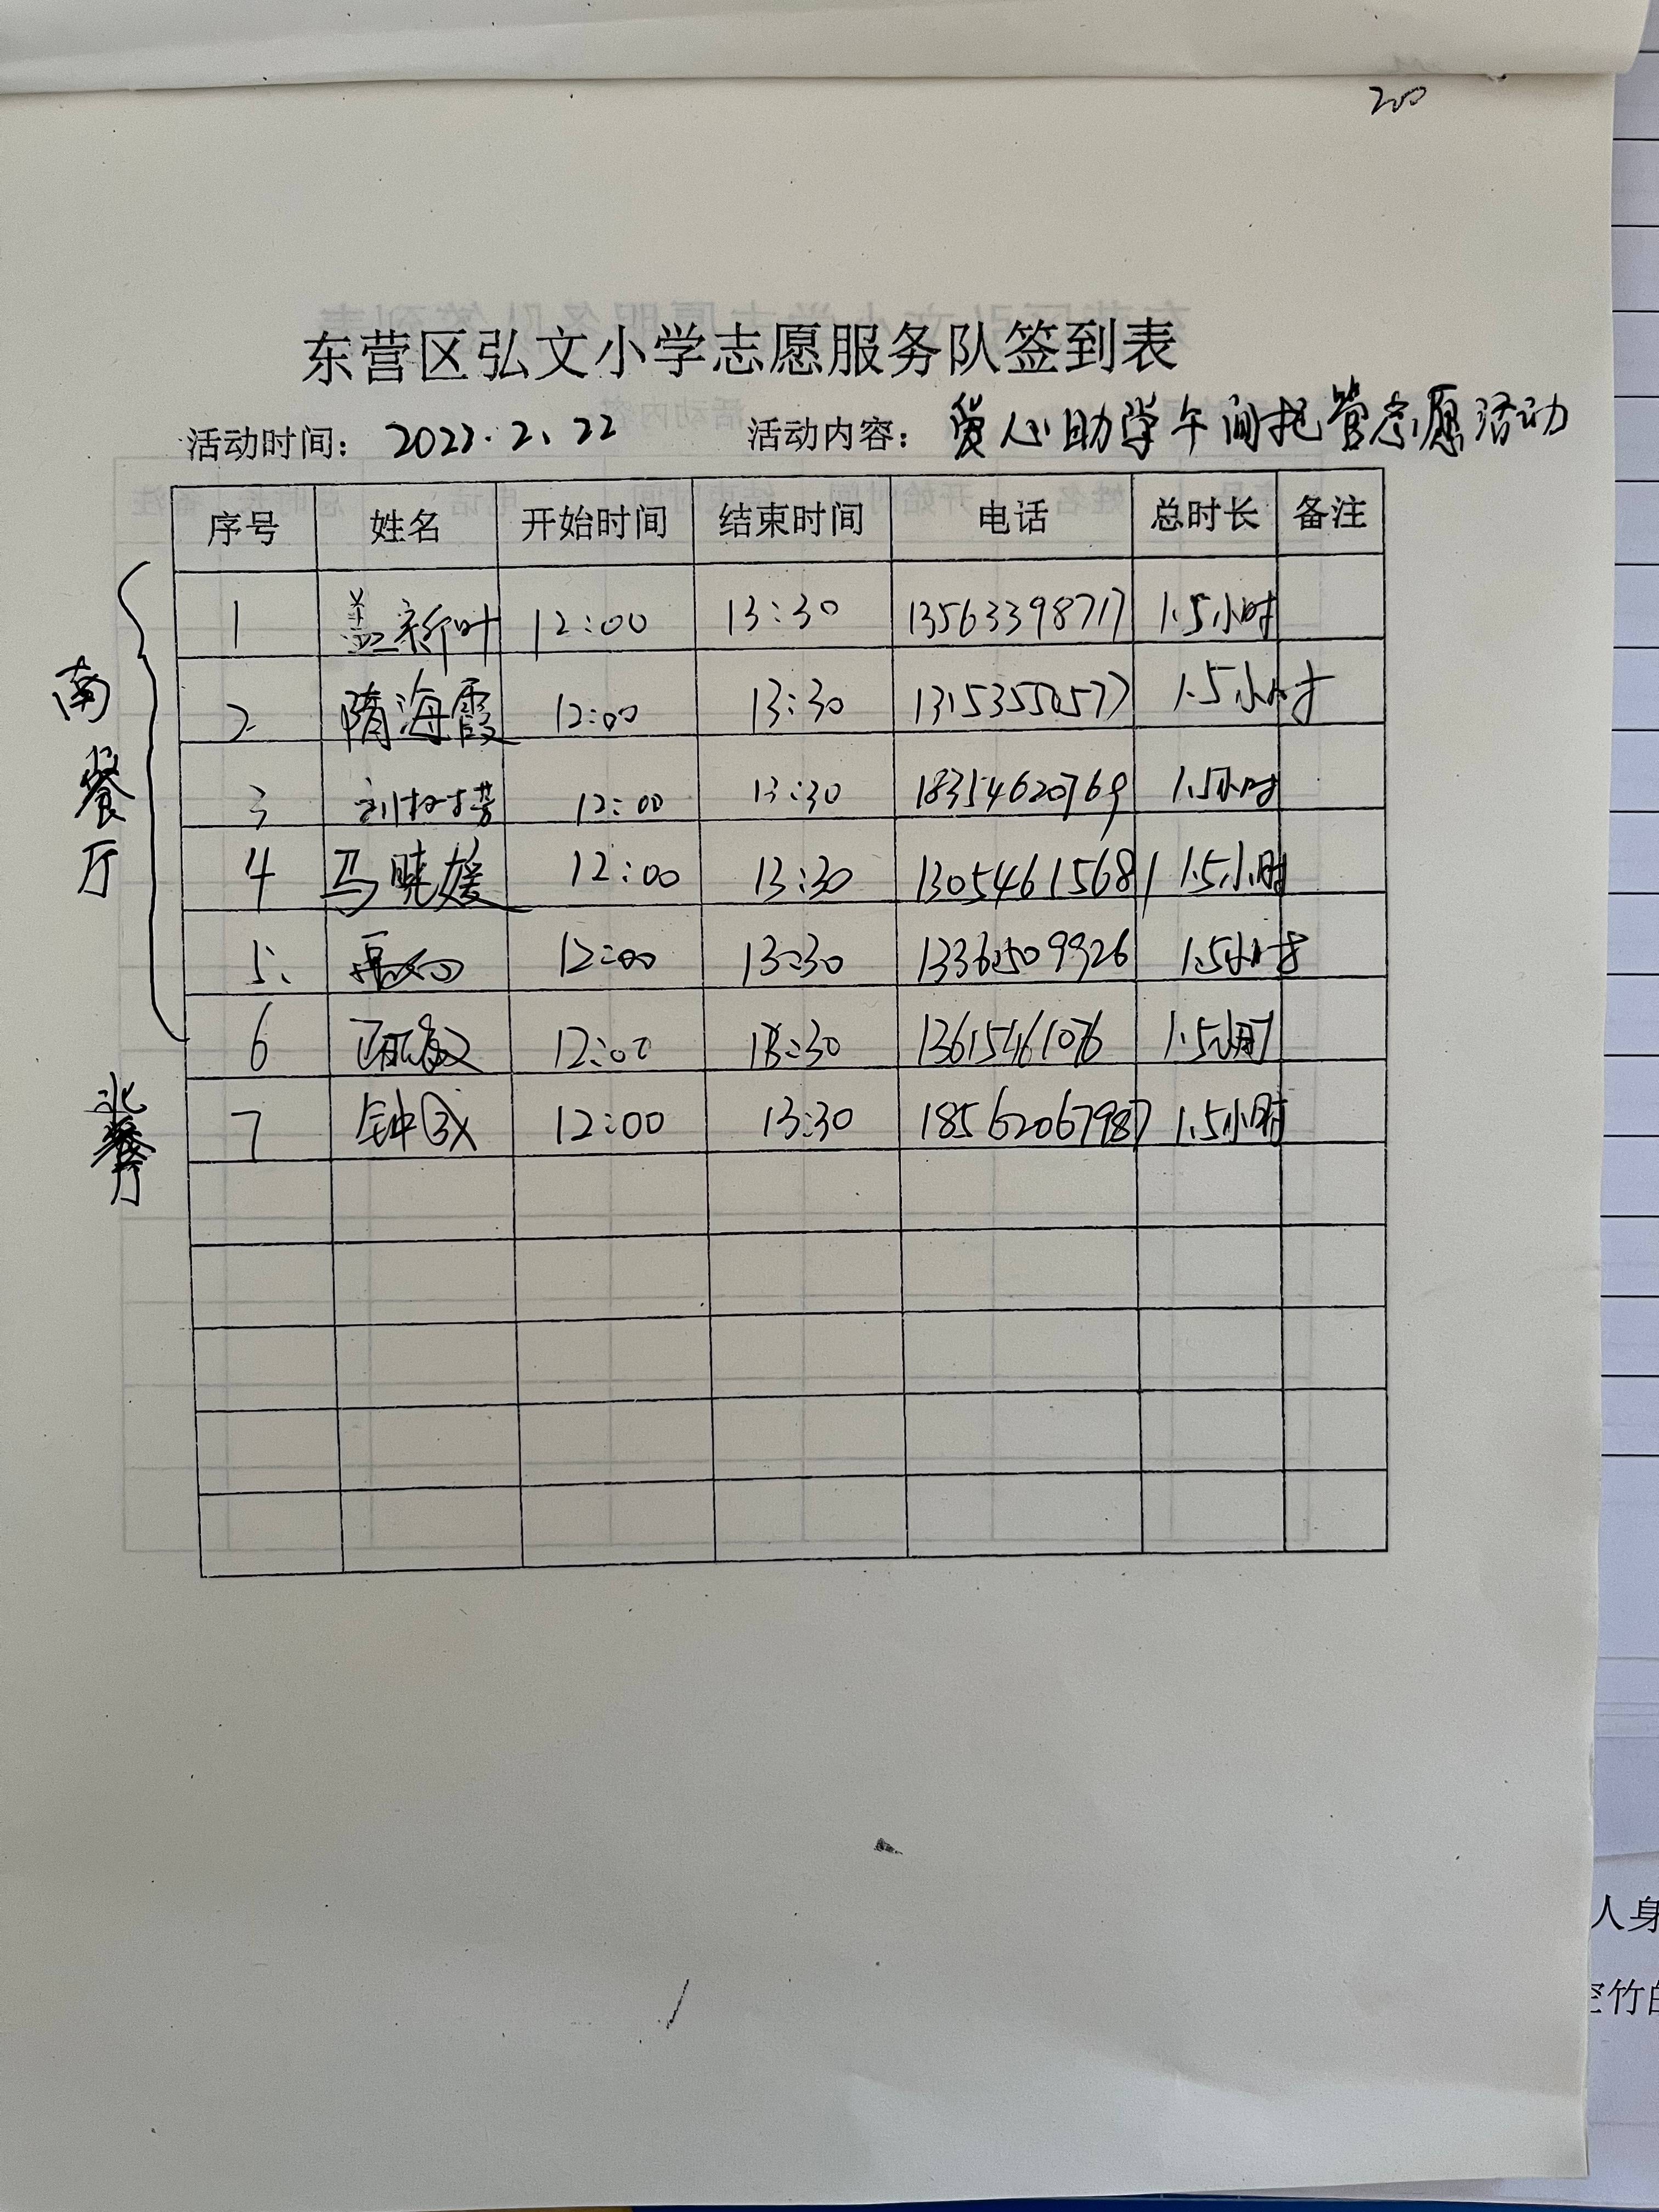 200
东营区弘文小学志愿服务队签到表
活动时间： 2022.2.22 活动内容： 爱心助学午间托管志愿活动
序号 姓名 开始时间 结束时间 电话 总时长 备注
南餐厅
1 盖新叶 12:00 13:30 13563398717 1.5小时
2 隋海霞 12:00 13:30 1.5小时
3 12:00 13:30 18354620769 1.5小时
4 马晓媛 12:00 13:30 13054615681 1.5小时
5、 12:00 13:30 1.5小时
6 12:00 13:30 1.5小时
北餐厅
7 12:00 13:30 18562067987 1.5小时
人身
空竹的